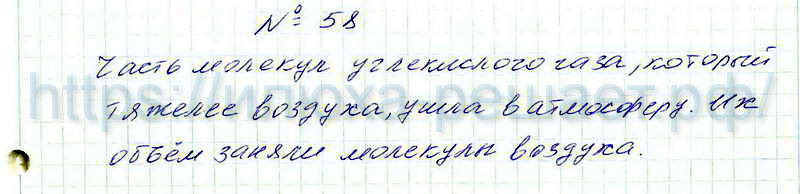 № 58
Часть молекул углекислого газа, который
тяжелее воздуха, ушла в атмосферу. Их
объём заняли молекулы воздуха.
https://илюха-решает.рф/